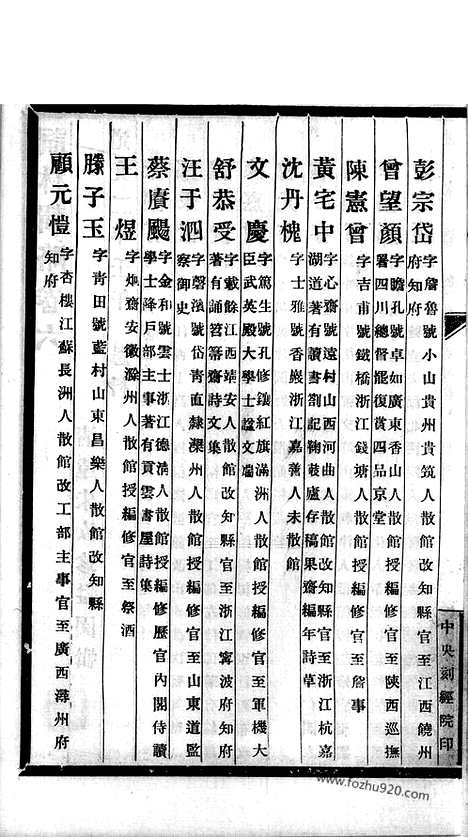 彭宗岱 字詹魯號小山貴州貴筑人散館改知縣官至江西饒州
府知府
曾望顏 字瞻孔號卓如廣東香山人散館授編修官至陝西巡撫
署四川總督罷復賞四品京堂
陳憲曾 字吉甫號鐵橋浙江錢塘人散館授編修官至詹事
黃宅中 字心齋號遠村山西河曲人散館改知縣官至浙江杭嘉
湖道著有讀書劄記鞠䕃廬存稿果齋編年詩草
沈丹槐 字士雅號香巖浙江嘉善人未散館
文慶 字篤生號孔修鑲紅旗滿洲人散館授編修官至軍機大
臣武英殿大學士諡文端
舒恭受 字載餘江西靖安人散館改知縣官至浙江寗波府知府
著有誦苕箬齋詩文集
汪于泗 字磬濱號岱青直隸灤州人散館授編修官至山東道監
察御史
蔡賡颺 字金和號雲士浙江德清人散館授編修歷官內閣侍讀
學士降戶部主事著有貢雲書屋詩集
王煜 字炯齋安徽滁州人散館授編修官至祭酒
滕子玉 字青田號藍村山東昌樂人散館改知縣
顧元愷 字杏樓江蘇長洲人散館改工部主事官至廣西潯州府
知府
中央刻經院印
www.fozhu920.com